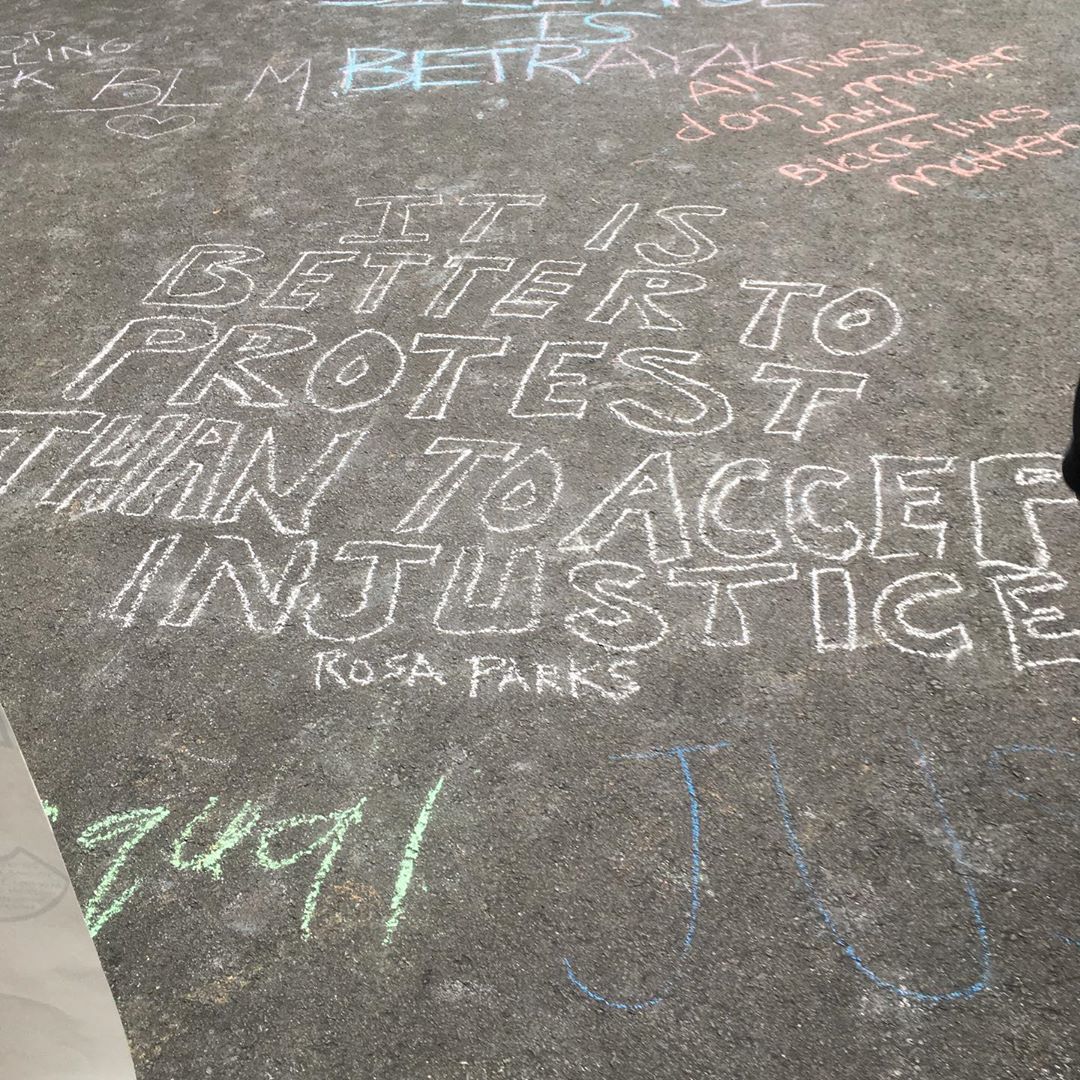 IS
BETRAYAL
BLM
All lives
don't matter
until
Black lives
matter
IT IS
BETTER TO
PROTEST
THAN TO ACCEP
INJUSTICE
ROSA PARKS
qual
JU